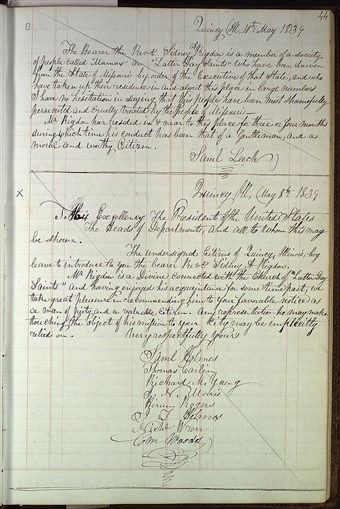 44
Quincy, Ill, 11th May 1839
The Bearer the Revd Sidney Rigdon is a member of a Society
of people called Mormons or "Latter Day Saints" who have been driven
from the State of Missouri by order of the Executive of that State, and who
have taken up their residence in and about this place in large numbers
I have no hesitation in saying that this people have been most shamefully
persecuted and cruelly treated by the people of Missouri
Mr Rigdon has resided in & near to this place for three or four months
during which time his conduct has been that of a Gentleman, and a
moral and worthy Citizen.
Saml Leech
X
Quincy, Ill, May 8th 1839
To His Excellency The President of the United States
The Heads of Departments, and all to whom this may
be shown.
The undersigned Citizens of Quincy, Illinois, beg
leave to introduce to you the bearer Revd Sidney Rigdon.
Mr Rigdon is a Divine connected with the Church of "Latter Day
Saints" and having enjoyed his acquaintance for some time past, we
take great pleasure in recommending him to your favorable notice as
a man of piety and a valuable citizen. Any representation he may make
touching the object of his mission to your City may be implicitly
relied on. Very respectfully Yours
Saml Holmes
Thomas Carlin
Richard M. Young
L. V. Morris
Hiram Rogers
J. T. Holmes
Nichs Wren
C. M. Woods